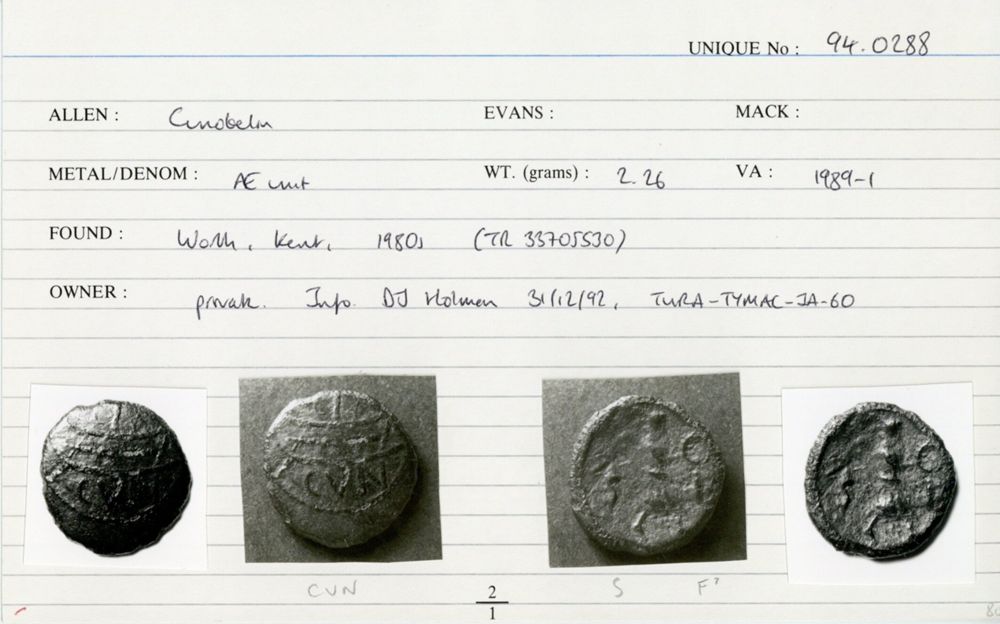 UNIQUE No : 94.0288
ALLEN : Cunobelin EVANS : MACK :
METAL/DENOM : AE unit WT. (grams) : 2.26 VA : 1989-1
FOUND : Worth, Kent, 1980s (TR 33705530)
OWNER : private. Info. DJ Holman 31/12/92, TURA-TYMAC-JA-60
CVN
CVN S F?
2
1
80